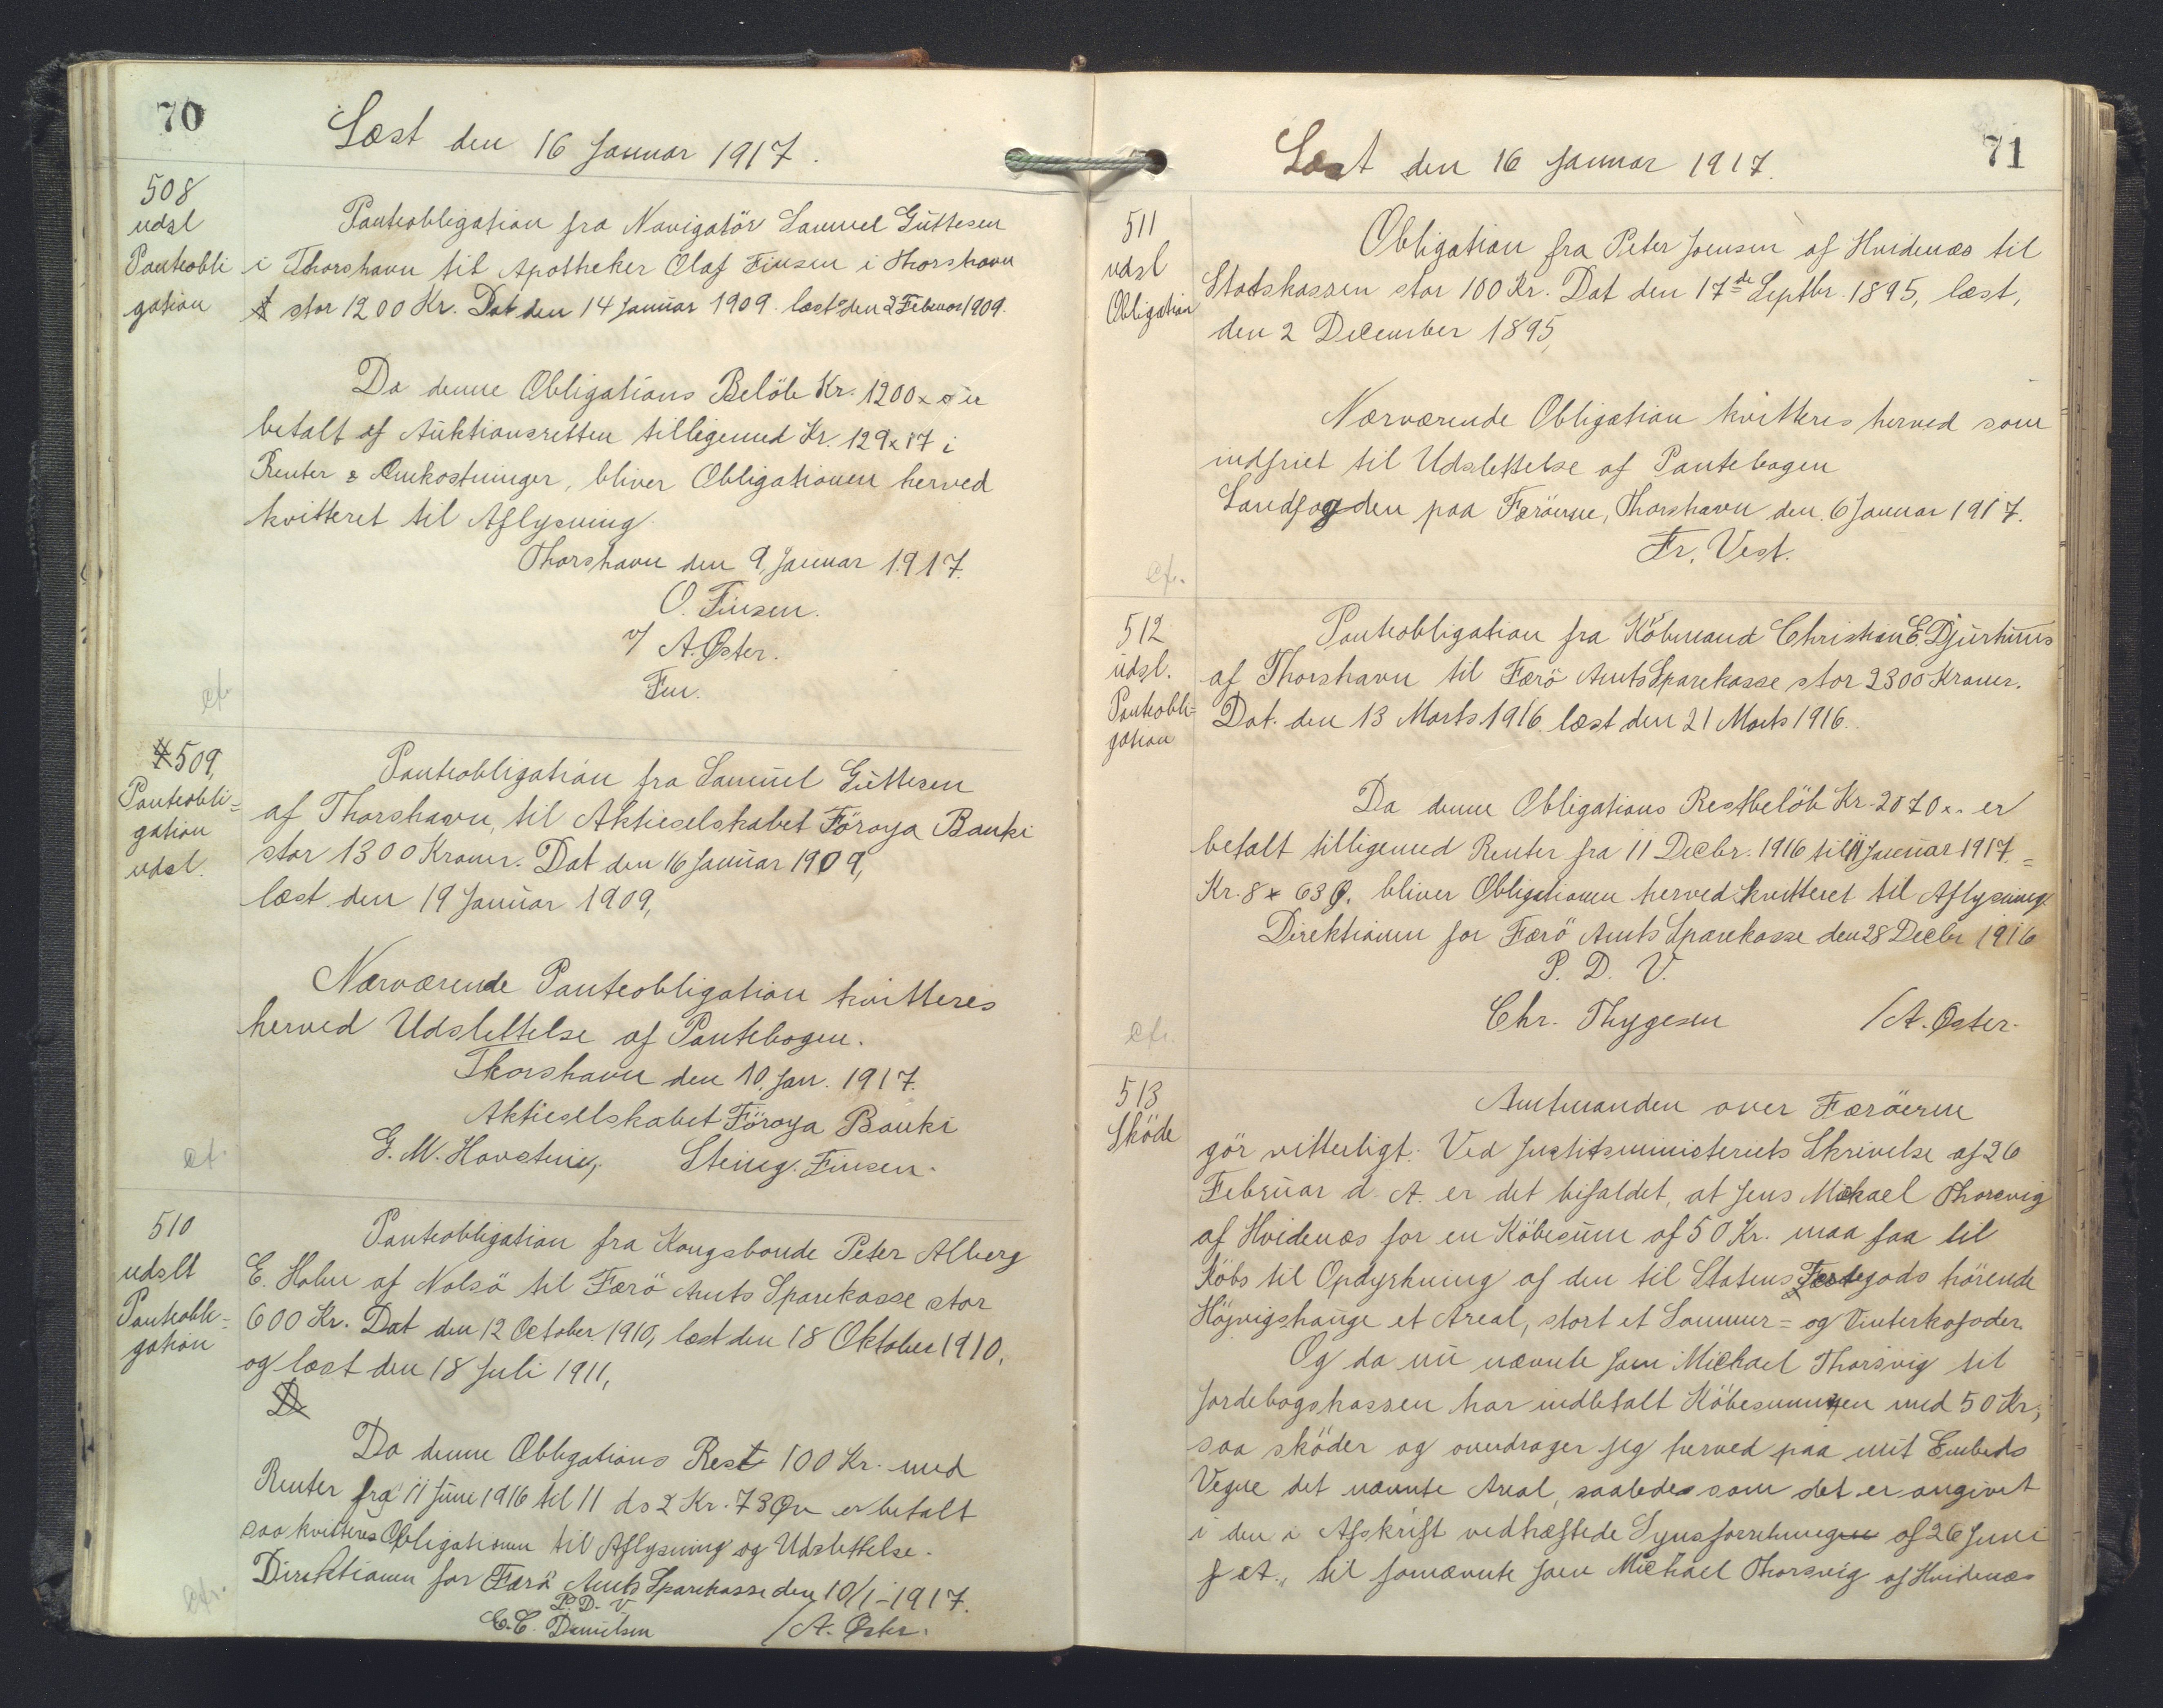 70
Læst den 16 Januar 1917.
508
udsl
Panteobli
gation
Panteobligation fra Navigatör Samuel Guttesen
i Thorshavn til Apotheker Olaf Finsen i Thorshavn
stor 1200 Kr. Dat den 14 Januar 1909. læst den 2 Februar 1909.
Da denne Obligations Belöb Kr. 1200 x 0 er
betalt af Auktionsretten tilligemed Kr. 129 x 17 i
Renter & Omkostninger, bliver Obligationen herved
kvitteret til Aflysning.
Thorshavn den 9, Januar 1917.
O. Finsen.
v/ A. Øster.
Fm.
cf.
509,
Panteobli=
gation
udsl.
Panteobligation fra Samuel Guttesen
af Thorshavn, til Aktieselskabet Föroya Banki
stor 1300 Kroner. Dat den 16 Januar 1909,
læst den 19 Januar 1909,
Nærværende Panteobligation kvitteres
herved Udslettelse af Pantebogen.
Thorshavn den 10. Jan. 1917.
Aktieselskabet Föroya Banki
G. M. Steing. Finsen.
cf.
510
udslt
Panteobli=
gation
Panteobligation fra Kongsbonde Peter Alberg
E. Holm af Nolsö til Færö Amts Sparekasse stor
600 Kr. Dat den 12 October 1910, læst den 18 Oktober 1910,
og læst den 18 Juli 1911,
Da denne Obligations Rest 100 Kr. med
Renter fra 11 Juni 1916 til 11 ds 2 Kr. 73 Øre er betalt
saa kvitteres Obligationen til Aflysning og Udslettelse.
Direktionen for Færö Amts Sparekasse den 10/1-1917.
P. D. V
E. C. Danielsen /A. Øster.
cfr.
71
Læst den 16 Januar 1917.
511
udsl
Obligation
Obligation fra Peter Joensen af Hvidenæs til
Statskassen stor 100 Kr. Dat den 17de Septbr. 1895, læst,
den 2 December 1895,
Nærværende Obligation kvitteres herved som
indfriet til Udslettelse af Pantebogen
Landfogden paa Færöerne, Thorshavn den 6 Januar 1917.
Fr. Vest.
cfr.
512
udsl.
Panteobli=
gation
Panteobligation fra Köbmand Christian E. Djurhuus
af Thorshavn til Færö Amts Sparekasse stor 2300 Kroner.
Dat. den 13 Marts 1916 læst den 21 Marts 1916.
Da denne Obligations Restbelöb Kr. 2070 x. er
betalt tilligemed Renter fra 11 Decbr. 1916 til 11 Januar 1917. =
Kr. 8 x 63 Ø. bliver Obligationen herved kvitteret til Aflysning.
Direktionen for Færö Amts Sparekasse den 28 Decbr 1916
P. D. V.
Chr. Thygesen /A. Øster.
cfr.
513
Sköde
Amtmanden over Færöerne
gör vitterligt: Ved Justitsministeriets Skrivelse af 26
Februar d. A. er det bifaldet, at Jens Mikael Thorsvig
af Hvidenæs for en Köbesum af 50 Kr. maa faa til
Köbs til Opdyrkning af den til Statens Fæstegods hörende
Höjvigshauge et Areal, stort et Sommer= og Vinterkofoder.
Og da nu nævnte Jens Michael Thorsvig til
Jordebogskassen har indbetalt Köbesummen med 50 Kr.,
saa sköder og overdrager jeg herved paa mit Embeds
Vegne det nævnte Areal, saaledes som det er angivet
i den i Afskrift vedhæftede Synsforretning af 26 Juni
f. A., til fornævnte Jens Michael Thorsvig af Hvidenæs